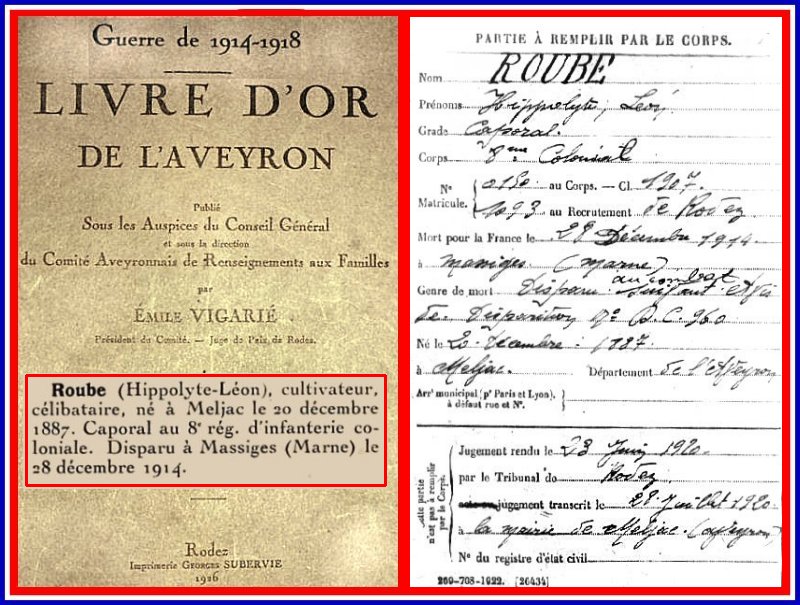 Guerre de 1914-1918
LIVRE D'OR
DE L'AVEYRON
Publié
Sous les Auspices du Conseil Général
et sous la direction
du Comité Aveyronnais de Renseignements aux Familles
par
ÉMILE VIGARIÉ
Président du Comité. — Juge de Paix de Rodez.
Roube (Hippolyte-Léon), cultivateur,
célibataire, né à Meljac le 20 décembre
1887. Caporal au 8e rég. d'infanterie co-
loniale. Disparu à Massiges (Marne) le
28 décembre 1914.
Rodez
Imprimerie GEORGES SUBERVIE
1926
PARTIE À REMPLIR PAR LE CORPS.
Nom ROUBE
Prénoms Hippolyte, Léon,
Grade Caporal.
Corps 8me Colonial
N° 0150 au Corps. — Cl. 1907.
Matricule. 1093 au Recrutement de Rodez
Mort pour la France le 28 Décembre 1914.
à (Marne)
Genre de mort Disparu au combat
de Disparition
Né le 20 Décembre 1887
à Meljac. Département de l'Aveyron
Arrt municipal (pr Paris et Lyon),
à défaut rue et N°.
Cette partie
n'est pas à remplir
par le Corps.
Jugement rendu le 23 Juin 1920.
par le Tribunal de Rodez
jugement transcrit le 28 Juillet 1920.
à la mairie de Meljac. (Aveyron)
N° du registre d'état civil
269-708-1922. [26434]